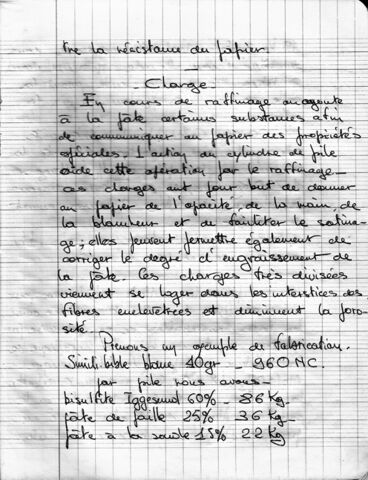 tre la résistance du papier.
Charge.
En cours de raffinage on ajoute
à la pâte certaines substances afin
de communiquer au papier des propriétés
spéciales. L'action du cylindre de pile
aide cette opération par le raffinage.
ces charges ont pour but de donner
au papier de l'opacité, de la main de
la blancheur et de faciliter le satina-
ge; elles peuvent permettre également de
corriger le degré d'engraissement de
la pâte. Ces charges très divisées
viennent se loger dans les interstices des
fibres enchevêtrées et diminuent la poro-
sité.
Prenons un exemple de fabrication.
Simili bible blanc 40gr - 960 NC.
par pile nous avons -
bisulfite Iggesund 60% - 86 Kg -
pâte de paille 25% 36 Kg -
pâte à la soude 15% 22 Kg